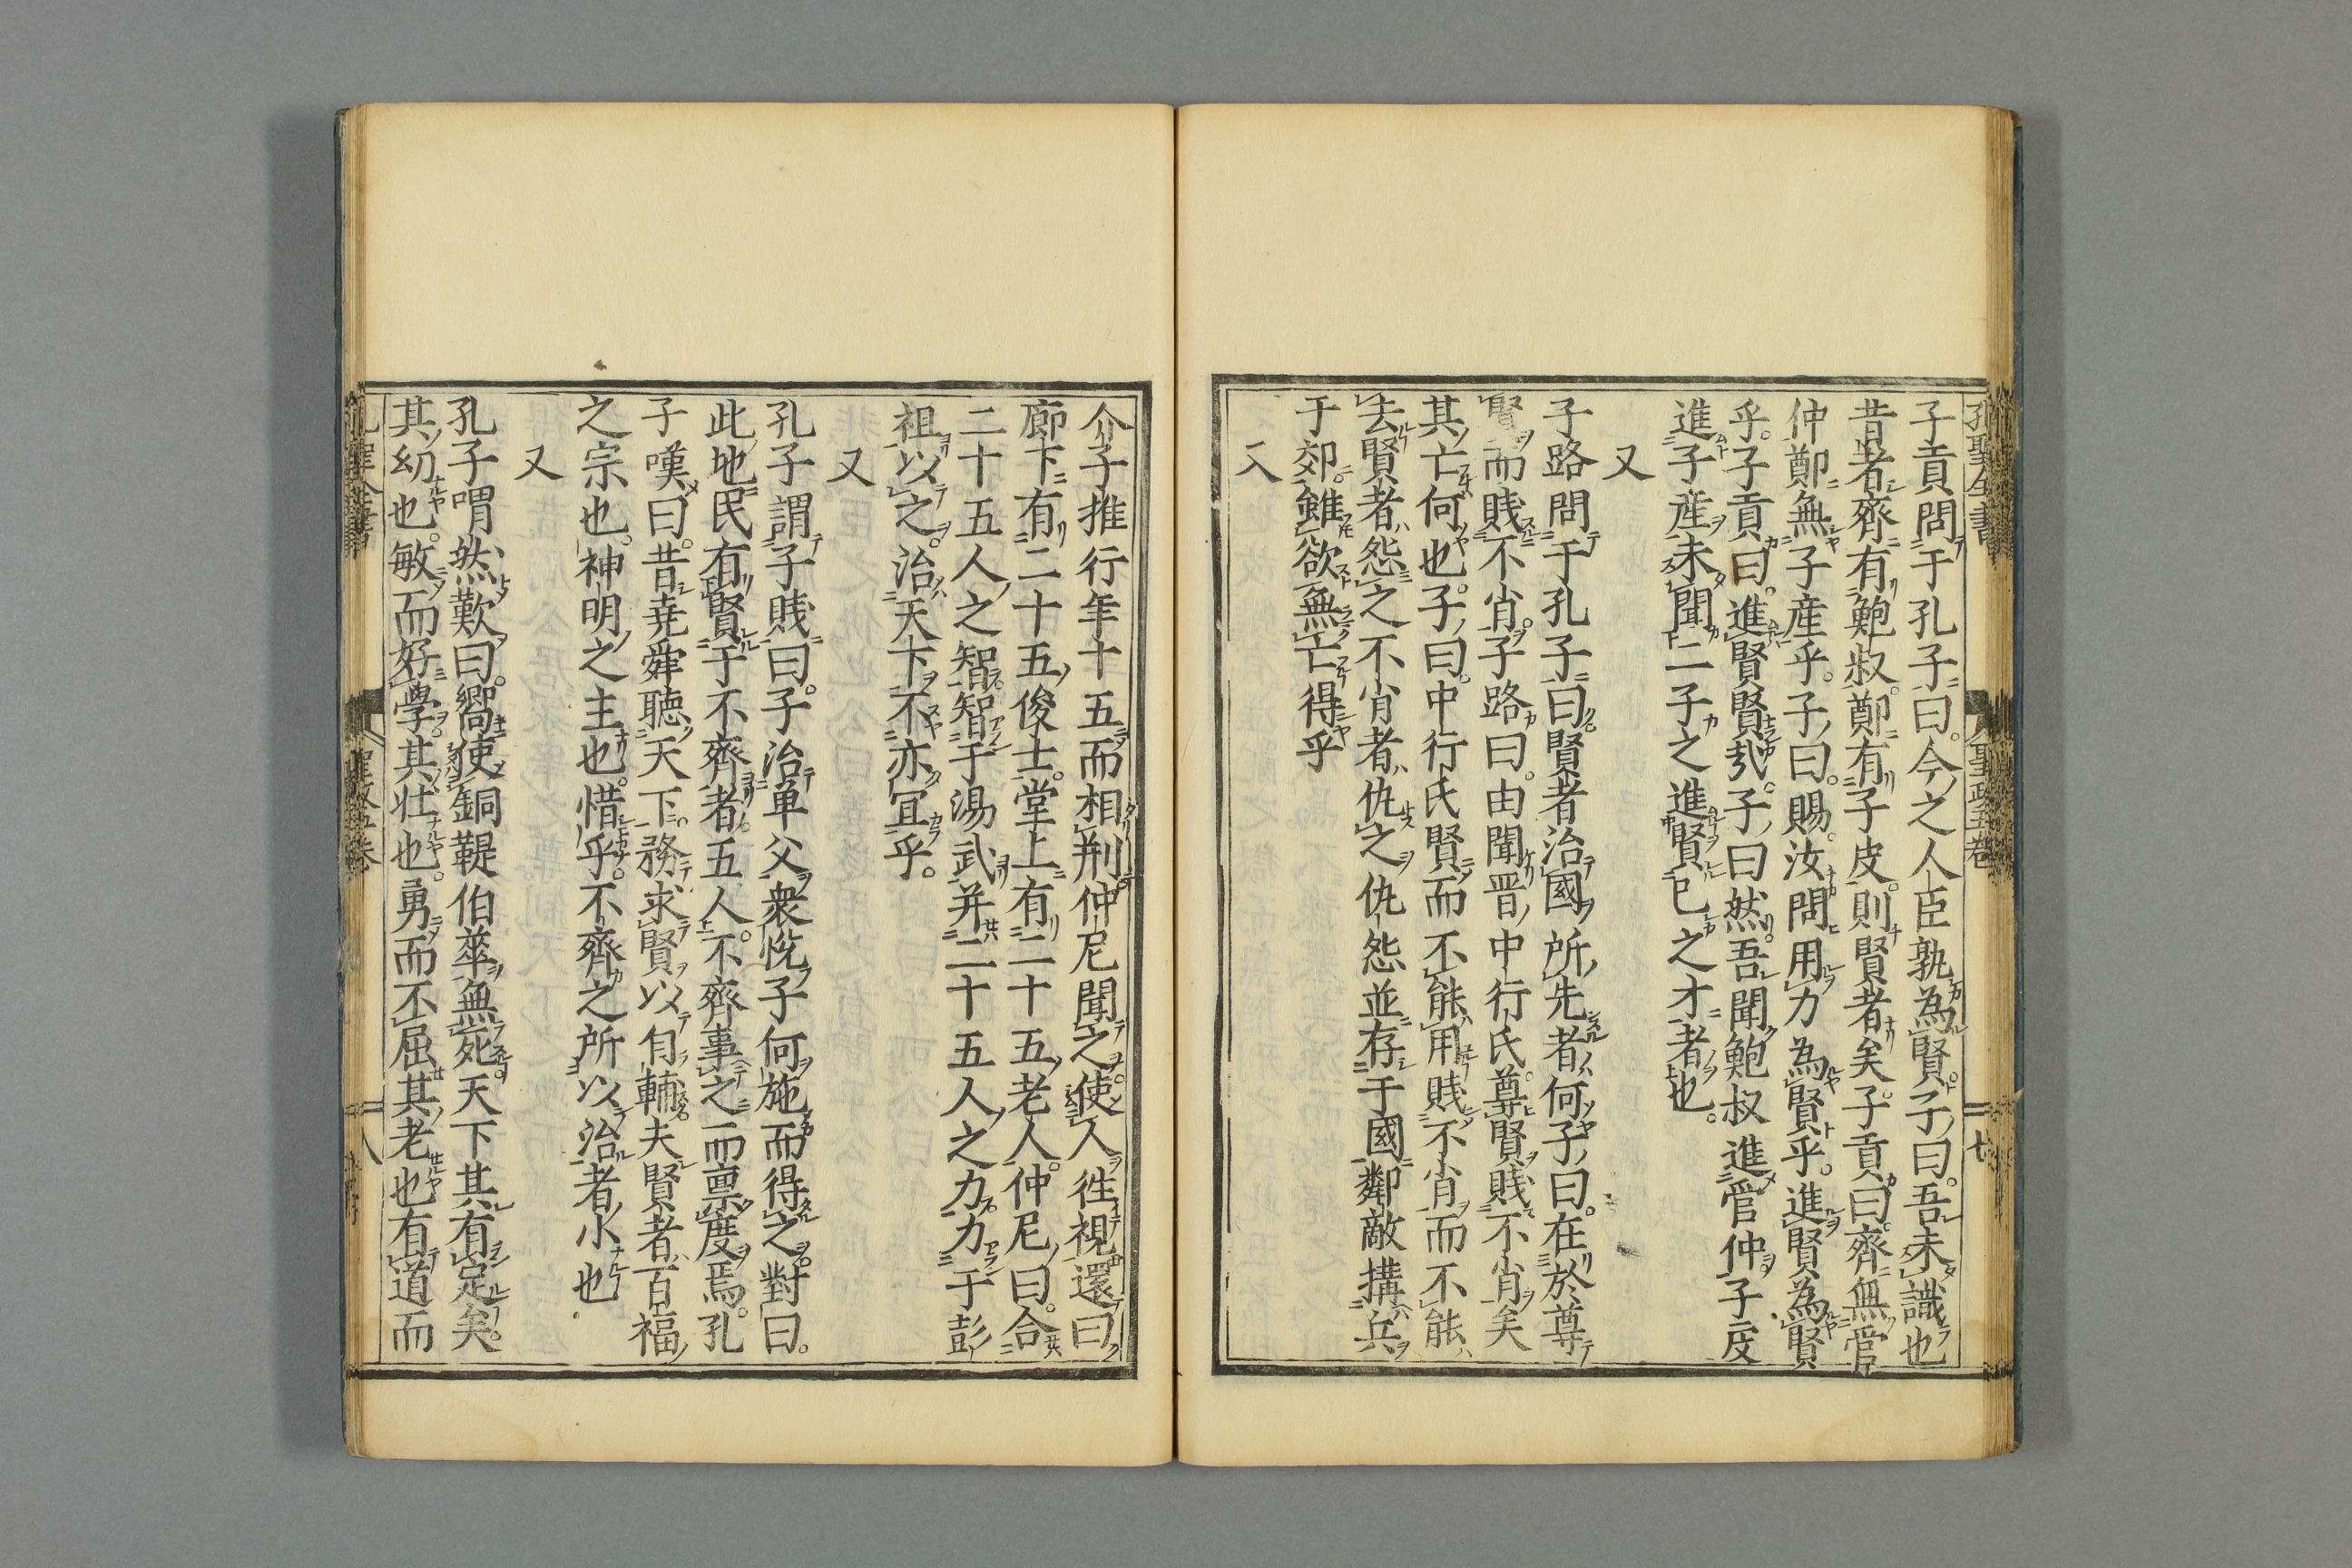 孔聖全書
聖政五卷
七
子貢問于孔子曰。今之人臣孰為賢。子曰。吾未識也
昔者齊有鮑叔。鄭有子皮。則賢者矣。子貢曰。齊無管
仲鄭無子産乎。子曰。賜。汝問用力為賢乎。進賢為賢
乎。子貢曰。進賢賢哉。子曰然。吾聞鮑叔進管仲子皮
進子産。未聞二子之進賢已之才者也。
又
子路問于孔子曰賢者治國所先者何子曰。在於尊
賢而賤不肖。子路曰。由聞晋中行氏。尊賢賤不肖矣
其亡何也。子曰。中行氏賢而不能用賤不肖而不能
去賢者怨之不肖者仇之仇怨並存于國鄰敵搆兵
于郊。雖欲無亡得乎
又
介子推行年十五而相荆仲尼聞之。使人徃視還曰
廊下有二十五俊士。堂上有二十五老人。仲尼曰。合
二十五人之智智于湯武并二十五人之力力于彭
祖以之。治天下不亦宜乎。
又
孔子謂子賤曰。子治单父衆悅子何施而得之。對曰。
此地民有賢于不齊者。五人。不齊事之而禀度焉。孔
子嘆曰。昔尭舜聴天下。務求賢以自輔夫賢者百福
之宗也。神明之主也。惜乎。不齊之所以治者小也
又
孔子喟然歎曰。嚮使銅鞮伯華無死天下其有定矣。
其幼也。敏而好學。其壯也。勇而不屈其老也有道而
聖政五卷
八